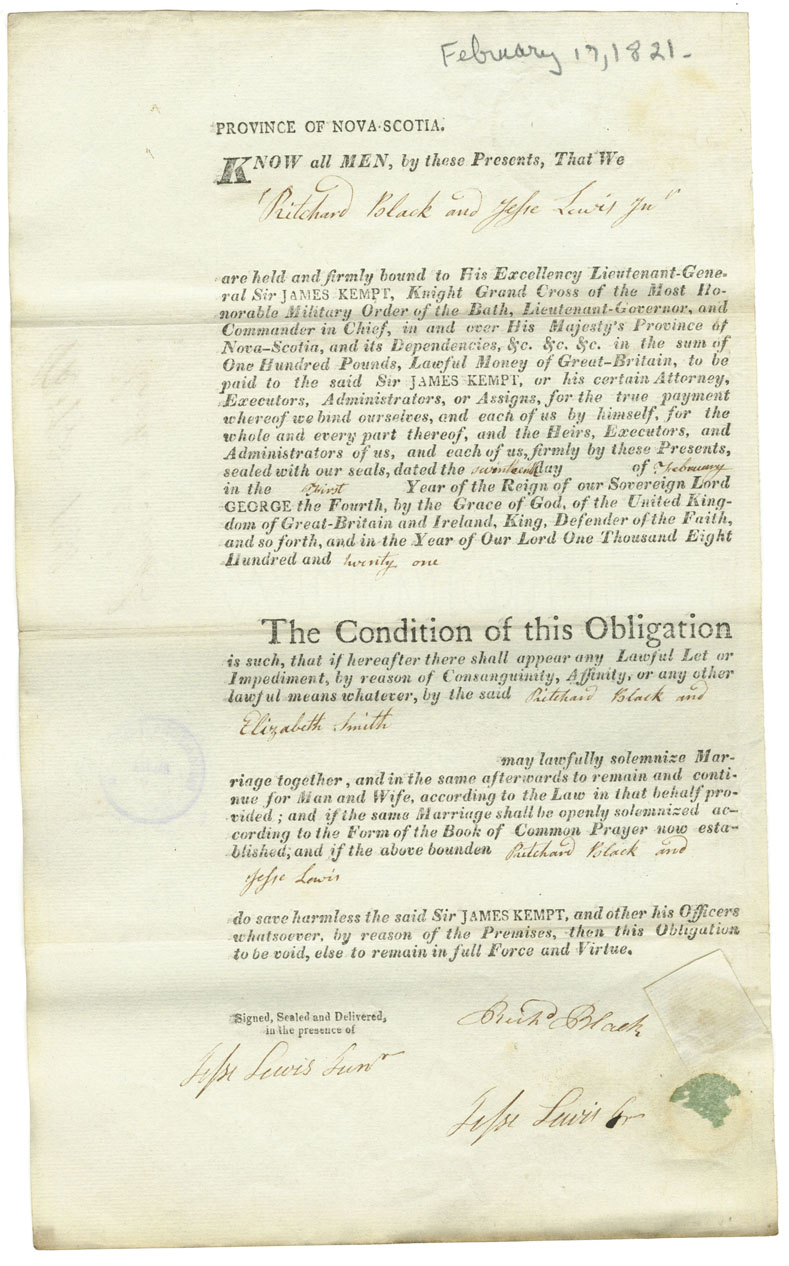 February 17, 1821-
PROVINCE OF NOVA-SCOTIA.
KNOW all MEN, by these Presents, That We
Pritchard Black and Jesse Lewis Junr
are held and firmly bound to His Excellency Lieutenant-Gene-
ral Sir JAMES KEMPT, Knight Grand Cross of the Most Ho-
norable Military Order of the Bath, Lieutenant-Governor, and
Commander in Chief, in and over His Majesty's Province of
Nova-Scotia, and its Dependencies, &c. &c. &c. in the sum of
One Hundred Pounds, Lawful Money of Great-Britain, to be
paid to the said Sir JAMES KEMPT, or his certain Attorney,
Executors, Administrators, or Assigns, for the true payment
whereof we bind ourselves, and each of us by himself, for the
whole and every part thereof, and the Heirs, Executors, and
Administrators of us, and each of us, firmly by these Presents,
sealed with our seals, dated the seventeenth day of February
in the First Year of the Reign of our Sovereign Lord
GEORGE the Fourth, by the Grace of God, of the United King-
dom of Great-Britain and Ireland, King, Defender of the Faith,
and so forth, and in the Year of Our Lord One Thousand Eight
Hundred and twenty one
The Condition of this Obligation
is such, that if hereafter there shall appear any Lawful Let or
Impediment, by reason of Consanguinity, Affinity, or any other
lawful means whatever, by the said Pritchard Black and
Elizabeth Smith
may lawfully solemnize Mar-
riage together, and in the same afterwards to remain and conti-
nue for Man and Wife, according to the Law in that behalf pro-
vided; and if the same Marriage shall be openly solemnized ac-
cording to the Form of the Book of Common Prayer now esta-
blished; and if the above bounden Pritchard Black and
Jesse Lewis
do save harmless the said Sir JAMES KEMPT, and other his Officers
whatsoever, by reason of the Premises, then this Obligation
to be void, else to remain in full Force and Virtue.
Signed, Sealed and Delivered,
in the presence of
Richd Black
Jesse Lewis Junr
Jesse Lewis Jr